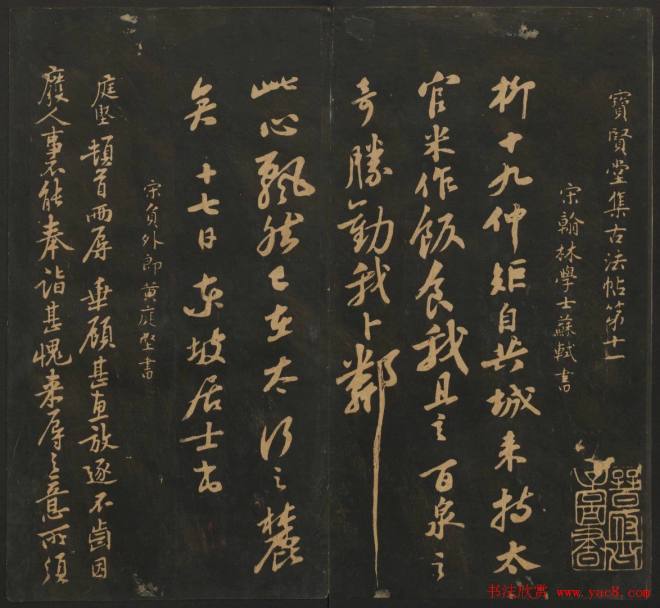 寶賢堂集古法帖第十一
宋翰林學士蘇軾書
柳十九仲矩自共城来持太
官米作飯食我且言百泉之
奇勝勸我卜鄰
此心飄然已在太行之麓
矣 十七日 東坡居士書
宋員外郎黃庭堅書
庭堅頓首両辱垂顧甚惠放逐不齒因
廢人事不能奉詣甚愧来辱之意所須
书法欣赏 www.yac8.com